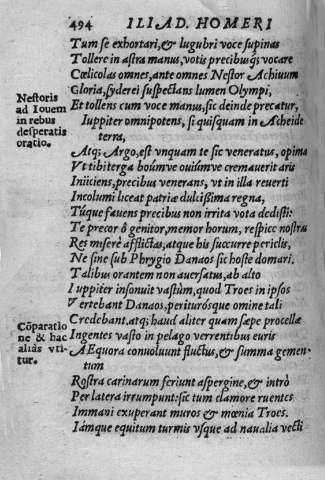 494 ILIAD. HOMERI
Tum se exhortari, & lugubri voce supinas
Tollere in astra manus, votis precibusq; vocare
Cœlicolas omnes, ante omnes Nestor Achiuum
Gloria, syderei suspectans lumen Olympi,
Nestoris
ad Iouem
in rebus
desperatis
oratio.
Et tollens cum voce manus, sic deinde precatur,
Iuppiter omnipotens, si quisquam in Acheide
terra,
Atq; Argo, est vnquam te sic veneratus, opima
Vt tibi terga boúmve ouiúmve cremauerit aris
Iniiciens, precibus venerans, vt in illa reuerti
Incolumi liceat patriæ dulcissima regna,
Túque fauens precibus non irrita vota dedisti:
Te precor ô genitor, memor horum, respice nostra
Res miserè afflictas, atque his succurre periclis,
Ne sine sub Phrygio Danaos sic hoste domari.
Talibus orantem non auersatus, ab alto
Iuppiter insonuit vastùm, quod Troes in ipsos
Vertebant Danaos, peritúrosque omine tali
Credebant, atq; haud aliter quam sæpe procellæ
Cōparatio
ne & hac
aliàs vti-
tur.
Ingentes vasto in pelago verrentibus euris
AEquora conuoluunt fluctus, & summa gemen-
tum
Rostra carinarum feriunt aspergine, & intrò
Per latera irrumpunt: sic tum clamore ruentes
Immani exuperant muros & mœnia Troes.
Iámque equitum turmis vsque ad naualia vecti